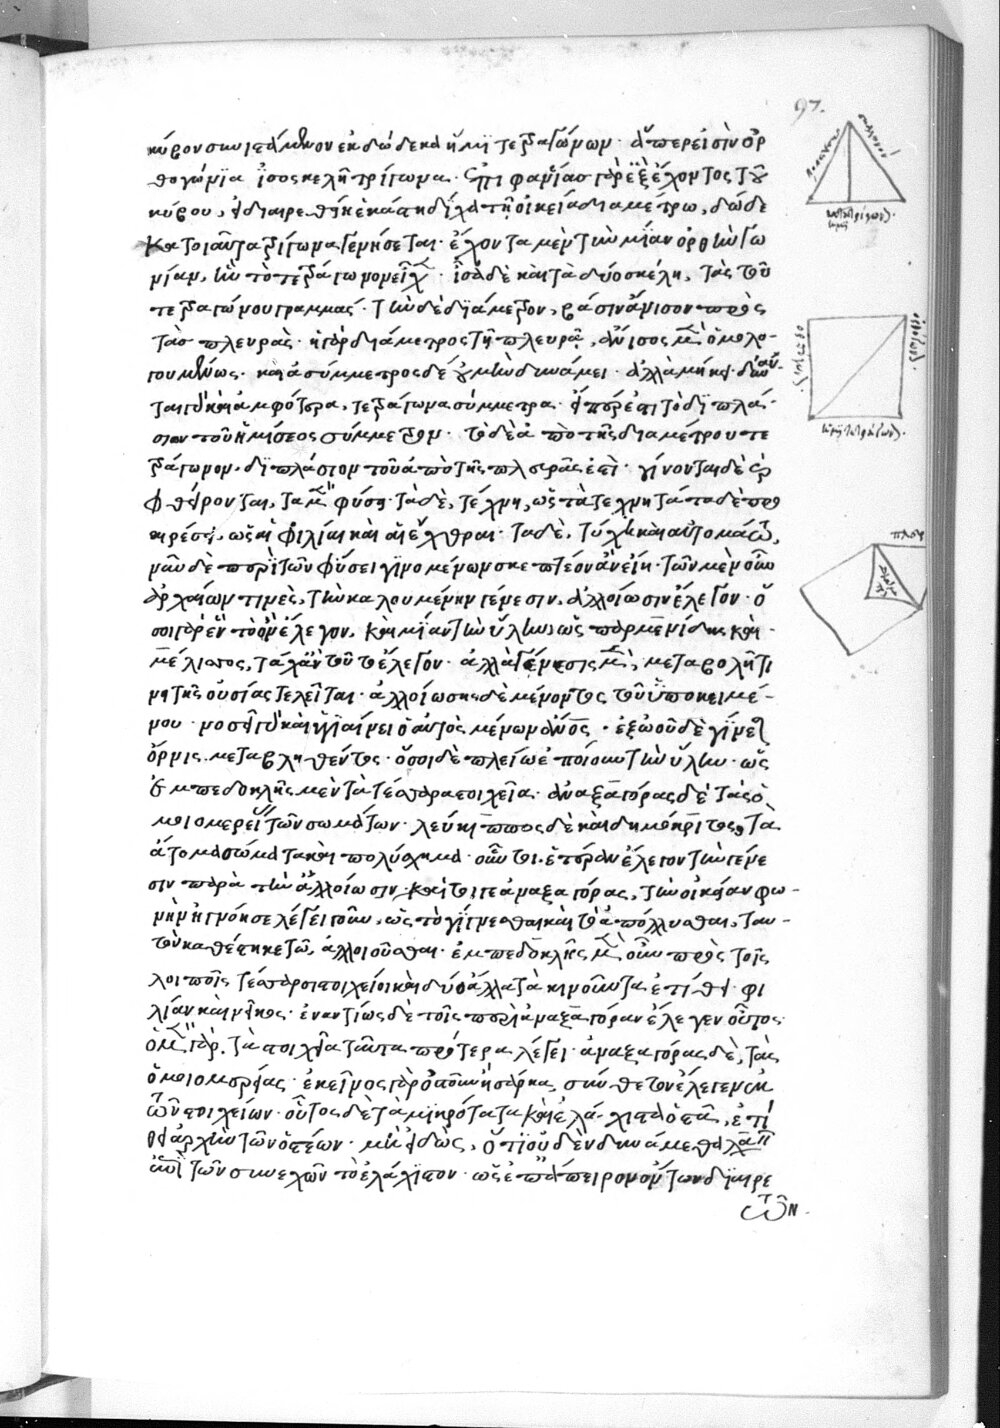 97.
κύβον συνιστάμενον ἐκ δώδεκα ἡμιτετραγώνων· ἅπερ εἰσὶν ὀρ
θογώνια ἰσοσκελῆ τρίγωνα. ἐπιφανείας γὰρ ἓξ ἔχοντος τοῦ
κύβου, διαιρεθῇ ἑκάστη δίχα τῇ οἰκείᾳ διαμέτρῳ, δώδε
κα τοιαῦτα τρίγωνα γενήσεται· ἔχοντα μὲν τὴν μίαν ὀρθὴν γω
νίαν, ἣν τὸ τετράγωνον εἶχε· ἴσα δὲ καὶ τὰ δύο σκέλη, τὰς τοῦ
τετραγώνου γραμμάς· τὴν δὲ διάμετρον, βάσιν ἄνισον πρὸς
τὰς πλευράς· ἡ γὰρ διάμετρος τῇ πλευρᾷ, ἄνισος μὲν ὁμολο-
γουμένως· καὶ ἀσύμμετρος δέ οὐ μὴν δυνάμει· ἀλλὰ μήκει· δύναν-
ται γὰρ ἀμφότερα, τετράγωνα σύμμετρα· ἐπὶ τὸ διπλά-
σιον τοῦ ἡμίσεος σύμμετρον· τὸ δὲ ἀπὸ τῆς διαμέτρου τε
τράγωνον, διπλάσιον τοῦ ἀπὸ τῆς πλευρᾶς ἐστί· γίνονται δὲ καὶ
φθείρονται, τὰ μὲν φύσει· τὰ δὲ, τέχνῃ, ὡς τὰ τεχνητά· τὰ δὲ προ
αιρέσει, ὡς αἱ φιλίαι καὶ αἱ ἔχθραι· τὰ δὲ, τύχῃ καὶ αὐτομάτῳ,
νῦν δὲ περὶ τῶν φύσει γινομένων σκεπτέον ἂν εἴη· τῶν μὲν οὖν
ἀρχαίων τινὲς, τὴν καλουμένην γένεσιν, ἀλλοίωσιν ἔλεγον· ὅ
σοι γὰρ ἓν τὸ ὂν ἔλεγον, καὶ μίαν τὴν ὕλην, ὡς παρμενίδης καὶ
μέλισσος, ταὐτὸν τοῦτο ἔλεγον· ἀλλὰ γένεσις μὲν, μεταβολῇ τι
νὶ τῆς οὐσίας τελεῖται· ἀλλοίωσις δὲ μένοντος τοῦ ὑποκειμέ-
νου· νοσεῖ γὰρ καὶ ὑγιαίνει ὁ αὐτὸς μένων ἄνθρωπος· ἐξ ὠοῦ δὲ γίνεται
ὄρνις μεταβληθέντος· ὅσοι δὲ πλείω ἐποίουν τὴν ὕλην· ὡς
ἐμπεδοκλῆς μὲν τὰ τέσσαρα στοιχεῖα· ἀναξαγόρας δὲ τὰς ὁ
μοιομερεῖς τῶν σωμάτων· λεύκιππος δὲ καὶ δημόκριτος, τὰ
ἄτομα σώματα καὶ πολύσχημα· οὗτοι ἕτερον ἔλεγον τὴν γένε
σιν παρὰ τὴν ἀλλοίωσιν· καίτοι γε ἀναξαγόρας, τὴν οἰκείαν φω-
νὴν ἠγνόησε λέγει γοῦν, ὡς τὸ γίγνεσθαι καὶ τὸ ἀπόλλυσθαι, ταυ-
τὸν καθέστηκε τῷ, ἀλλοιοῦσθαι· ἐμπεδοκλῆς μὲν οὖν πρὸς τοῖς
λοιποῖς τέσσαρσι στοιχείοις καὶ δύο ἄλλα τὰ κινοῦντα ἐπεί θει· φι
λίαν καὶ νεῖκος· ἐναντίως δὲ τοῖς περὶ ἀναξαγόραν ἔλεγεν οὗτος·
ὁ μὲν γὰρ, τὰ στοιχεῖα ταῦτα πρότερα λέγει· ἀναξαγόρας δὲ, τὰς
ὁμοιομερείας· ἐκεῖνος γὰρ ὀστοῦν ἢ σάρκα, σύνθετον ἔλεγεν ἐκ
τῶν στοιχείων· οὗτος δὲ τὰ μικρότατα καὶ ἐλάχιστα ὀστᾶ, ἐπί
θει ἀρχὴν τῶν ὀστέων· μὴ εἰδὼς, ὅτι οὐδὲν δυνάμεθα λαβεῖν
ἀπὸ τῶν συνεχῶν τὸ ἐλάχιστον· ὡς ἐπ' ἄπειρον ὄντων διαιρε
τῶν